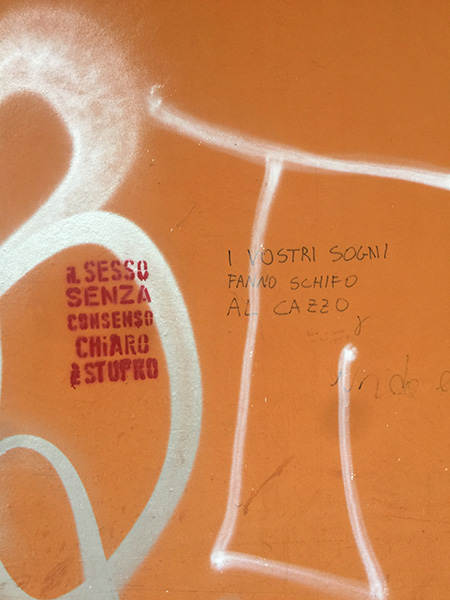 iL SESSO
SENZA
CONSENSO
CHiARO
È STUPRO
I VOSTRI SOGNI
FANNO SCHIFO
AL CAZZO